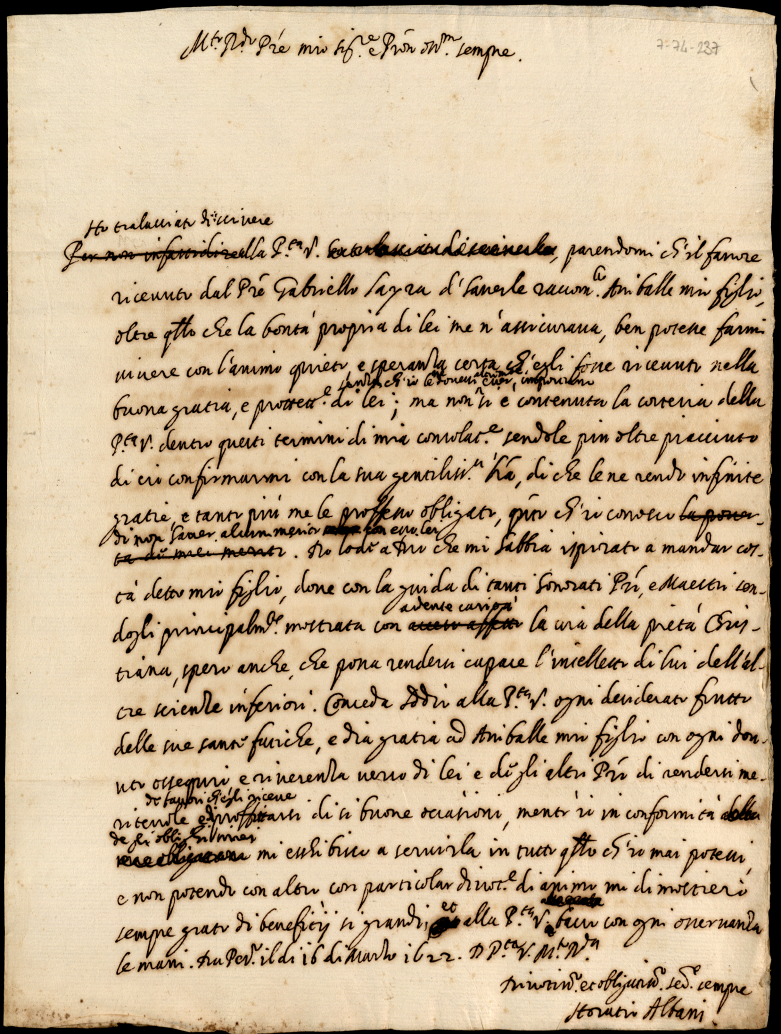 7-74-237
M.to R.do P're mio sig.re e P'ron oss.mo sempre.
Ho tralasciato di scrivere
Per non infastidire alla P.tà V. parendomi ch'il favore
ricevuto dal P're Gabriello d'haverle racom.to Aniballe mio figlio,
oltre q'llo che la bontà propria di lei me n'assicurava, ben potesse farmi
vivere con l'animo quieto, e speranza certa ch'egli fosse ricevuto nella
senza ch'io le dovessi esser importuno
buona gratia, e protett.e di lei; ma non si è contenuta la cortesia della
P.tà V. dentro questi termini di mia consolat.e sendole più oltre piacciuto
di ciò confirmarmi con la sua gentiliss.a l'ra, di che le ne rendo infinite
gratie, e tanto più me le professo obligato, q'nto ch'io conosco la pover-
di non haver alcun merito con esso lei
tà de miei meriti. Ho lode a Dio che mi habbia ispirato a mandar cos-
tà detto mio figlio, dove con la guida di tanti honorati P'ri, e Maestri sen-
ardente carità
dogli principalm.te mostrata con la via della pietà Chris-
tiana, spero anche, che possa rendersi capace l'intelletto di lui dell'al-
tre scienze inferiori. Conceda Iddio alla P.tà V. ogni desiderato frutto
delle sue sante fatiche, e dia gratia ad Aniballe mio figlio con ogni dov-
uto ossequio e riverenza verso di lei e degli altri P'ri di rendersi me-
de favori ch'egli riceve
ritevole e profittarsi di si buone occasioni, mentr'io in conformità della
degli oblighi miei
mi essibisco a servirla in tutto q'llo ch'io mai potessi,
e non potendo con altro con particolar divot.e di animo mi dimostrerò
sempre grato di beneficij si grandi, et alla P.tà V. bacio con ogni osservanza
le mani. Da Per.o il di 16 di Marzo 1622. D P.tà V. M.to R.da
Divotiss.o et obligatiss.o se.re sempre
Horatio Albani